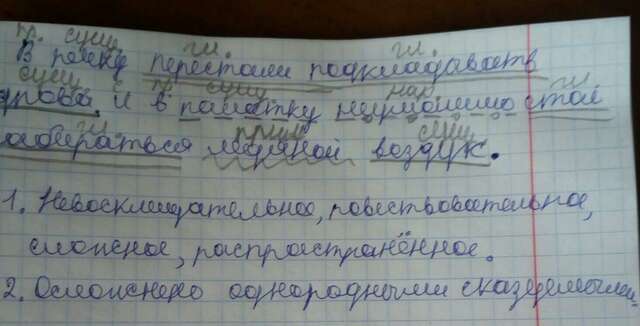 пр. сущ. гл. гл.
В печку перестали подкладывать
сущ. с. пр. сущ. нар. гл.
дрова, и в палатку нещадимо стал
гл. прил. сущ.
собираться ледяной воздух.
1. Невосклицательное, повествовательное,
сложное, распространённое.
2. Осложнено однородными сказуемыми